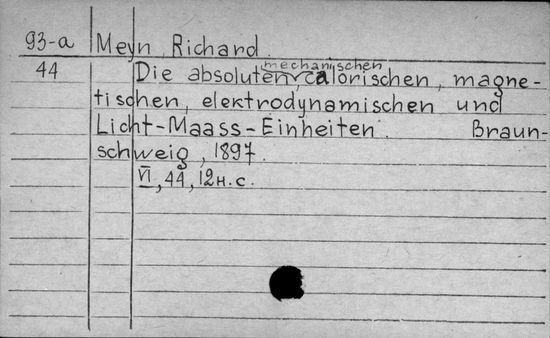 93-a Meyn, Richard.
44 Die absoluten, mechanischen, calorischen, magne-
tischen, elektrodynamischen und
Licht-Maass-Einheiten. Braun-
schweig, 1897.
VI, 44, 12 н. с.